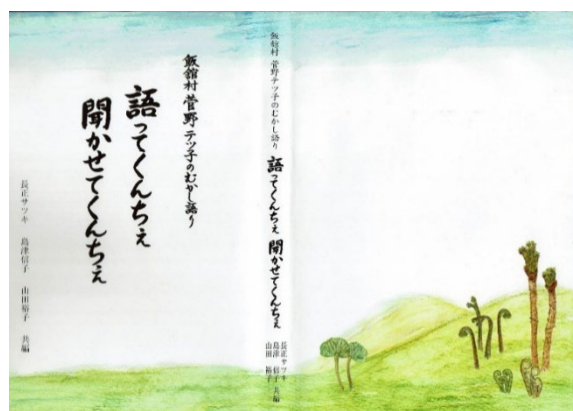 飯舘村 菅野テツ子のむかし語り
語ってくんちぇ
聞かせてくんちぇ
長正サツキ 島津信子 山田裕子 共編
飯舘村 菅野テツ子のむかし語り 語ってくんちぇ 聞かせてくんちぇ
長正サツキ
島津 信子 共編
山田 裕子